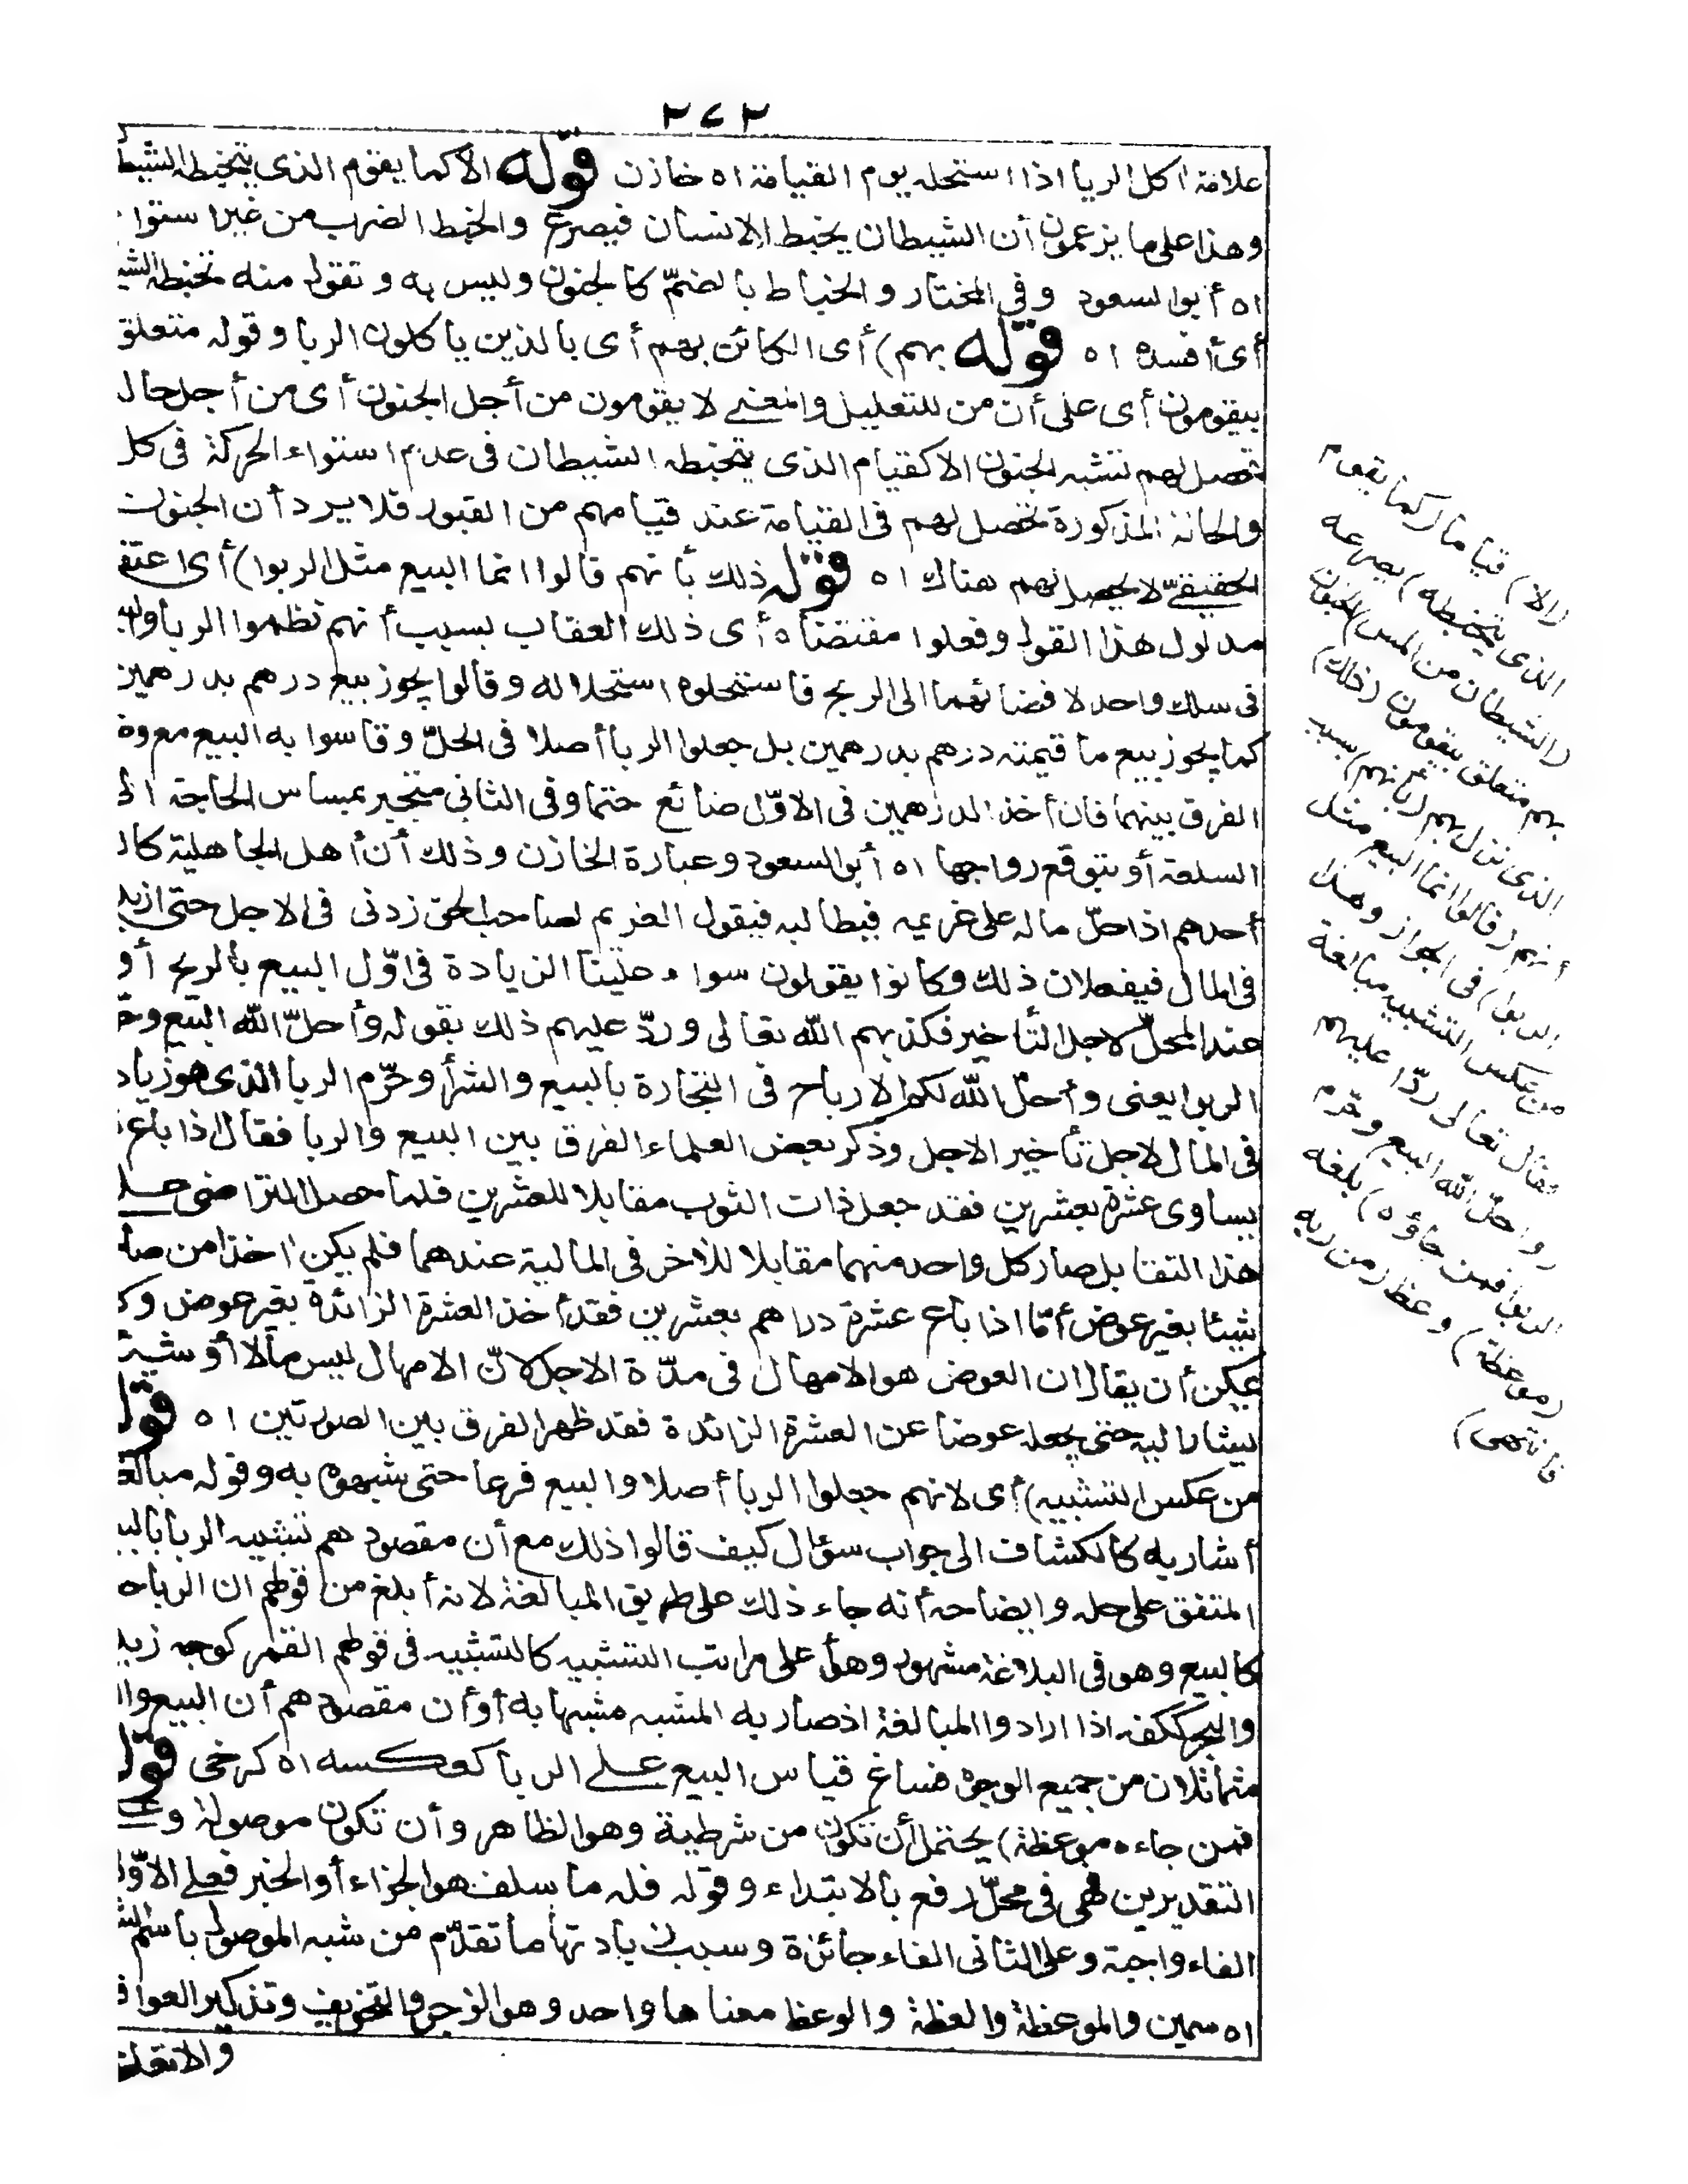 ٢٧٢
علامة اكل الربا اذا استحله يوم القيامة اه خازن قوله الا كما يقوم الذى يتخبطه الشيط
وهذا على ما يزعمون أن الشيطان يخبط الانسان فيصرع والخبط الضرب من غير استوا
اه أبو السعود وفى المختار والخباط بالضمّ كالجنون وليس به وتقول منه تخبطه الشي
أى أفسده اه قوله بهم) أى الكائن بهم أى بالذين ياكلون الربا وقوله متعلق
بيقومون أى على أن من للتعليل والمعنى لا يقومون من أجل الجنون أى من أجل حال
تحصل لهم تشبه الجنون الا كقيام الذى يتخبطه الشيطان فى عدم استواء الحركة فى كل
والحالة المذكورة تحصل لهم فى القيامة عند قيامهم من القبور فلا يرد أن الجنون
الحقيقىّ لا يحصل لهم هناك اه قوله ذلك بأنهم قالوا انما البيع مثل الربوا) أى اعتق
مدلول هذا القول وفعلوا مقتضاه أى ذلك العقاب بسبب أنهم نظموا الربا والب
فى سلك واحد لافضائهما الى الربح فاستحلوه استحلاله وقالوا يجوز بيع درهم بدرهمين
كما يجوز بيع ما قيمته درهم بدرهمين بل جعلوا الربا أصلا فى الحلّ وقاسوا به البيع مع وض
الفرق بينهما فان أخذ الدرهمين فى الاوّل ضائع حتما وفى الثانى منجبر بمساس الحاجة الى
السلعة أو بتوقع رواجها اه أبو السعود وعبارة الخازن وذلك أن أهل الجاهلية كان
أحدهم اذا حلّ ماله على غريمه فيطالبه فيقول الغريم لصاحب الحق زدنى فى الاجل حتى ازيد
فى المال فيفعلان ذلك وكانوا يقولون سواء علينا الزيادة فى اوّل البيع بالربح أو
عند المحلّ لاجل التأخير فكذبهم الله تعالى وردّ عليهم ذلك بقوله وأحلّ الله البيع وح
الربوا يعنى وأحلّ الله لكم الارباح فى التجارة بالبيع والشرأ وحرّم الربا الذى هو زياد
فى المال لاجل تأخير الاجل وذكر بعض العلماء الفرق بين البيع والربا فقال اذا باع
يساوى عشرة بعشرين فقد جعل ذات الثوب مقابلا للعشرين فلما حصل التراضى على
هذا التقابل صار كل واحد منهما مقابلا للاخر فى المالية عندهما فلم يكن اخذا من صا
شيئا بغير عوض أمّا اذا باع عشرة دراهم بعشرين فقد أخذ العشرة الزائدة بغير عوض وك
يمكن أن يقال ان العوض هو الامهال فى مدّة الاجل لانّ الامهال ليس مالا أو شيئ
يشار اليه حتى يجعله عوضا عن العشرة الزائدة فقد ظهر الفرق بين الصورتين اه قول
من عكس التشبيه) أى لانهم جعلوا الربا أصلا والبيع فرعا حتى شبهوه به وقوله مبالغ
أشار به كالكشاف الى جواب سؤال كيف قالوا ذلك مع أن مقصودهم تشبيه الربا بالبي
المتفق على حله وايضاحه أنه جاء ذلك على طريق المبالغة لانه أبلغ من قولهم ان الربا ح
كالبيع وهو فى البلاغة مشهور وهو أعلى مراتب التشبيه كالتشبيه فى قولهم القمر كوجه زيد
والبحر ككفه اذا ارادوا المبالغة اذ صار به المشبه مشبها به أو أن مقصودهم أن البيع وال
متماثلان من جميع الوجوه فساغ قياس البيع على الربا كعكسه اه كرخى قول
فمن جاءه موعظة) يحتمل أن تكون من شرطية وهو الظاهر وأن تكون موصولة وع
التقديرين فهى فى محلّ رفع بالابتداء وقوله فله ما سلف هو الجزاء أو الخبر فعلى الاوّل
الفاء واجبة وعلى الثانى الفاء جائزة وسبب زيادتها ما تقدّم من شبه الموصول باسم الش
اه سمين والموعظة والعظة والوعظ معناها واحد وهو الزجر والتخويف وتذكير العواق
والاتعاظ
(الا) قياما (كما يقوم
الذى يتخبطه) يصرعه
(الشيطان من المس) الجنون
بهم متعلق بيقومون (ذلك)
الذى نزل بهم (بأنهم) بسبب
أنهم (قالوا انما البيع مثل
الربوا) فى الجواز وهذا
من عكس التشبيه مبالغة
فقال تعالى ردّا عليهم
(واحلّ الله البيع وحرم
الربوا فمن جاؤه) بلغه
(موعظة) وعظ (من ربه
فانتهى)